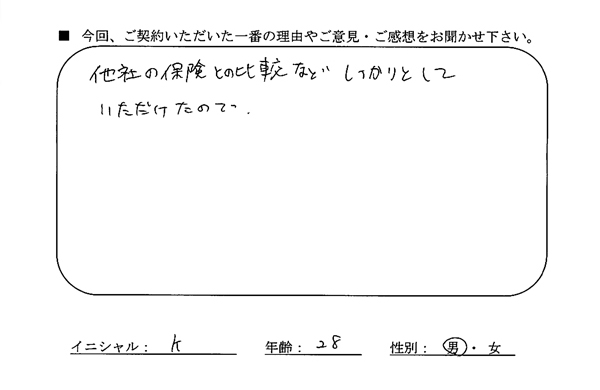 ■ 今回、ご契約いただいた一番の理由やご意見・ご感想をお聞かせ下さい。
他社の保険との比較など しっかりとして
いただけたので.
イニシャル： K 年齢： 28 性別： 男・女